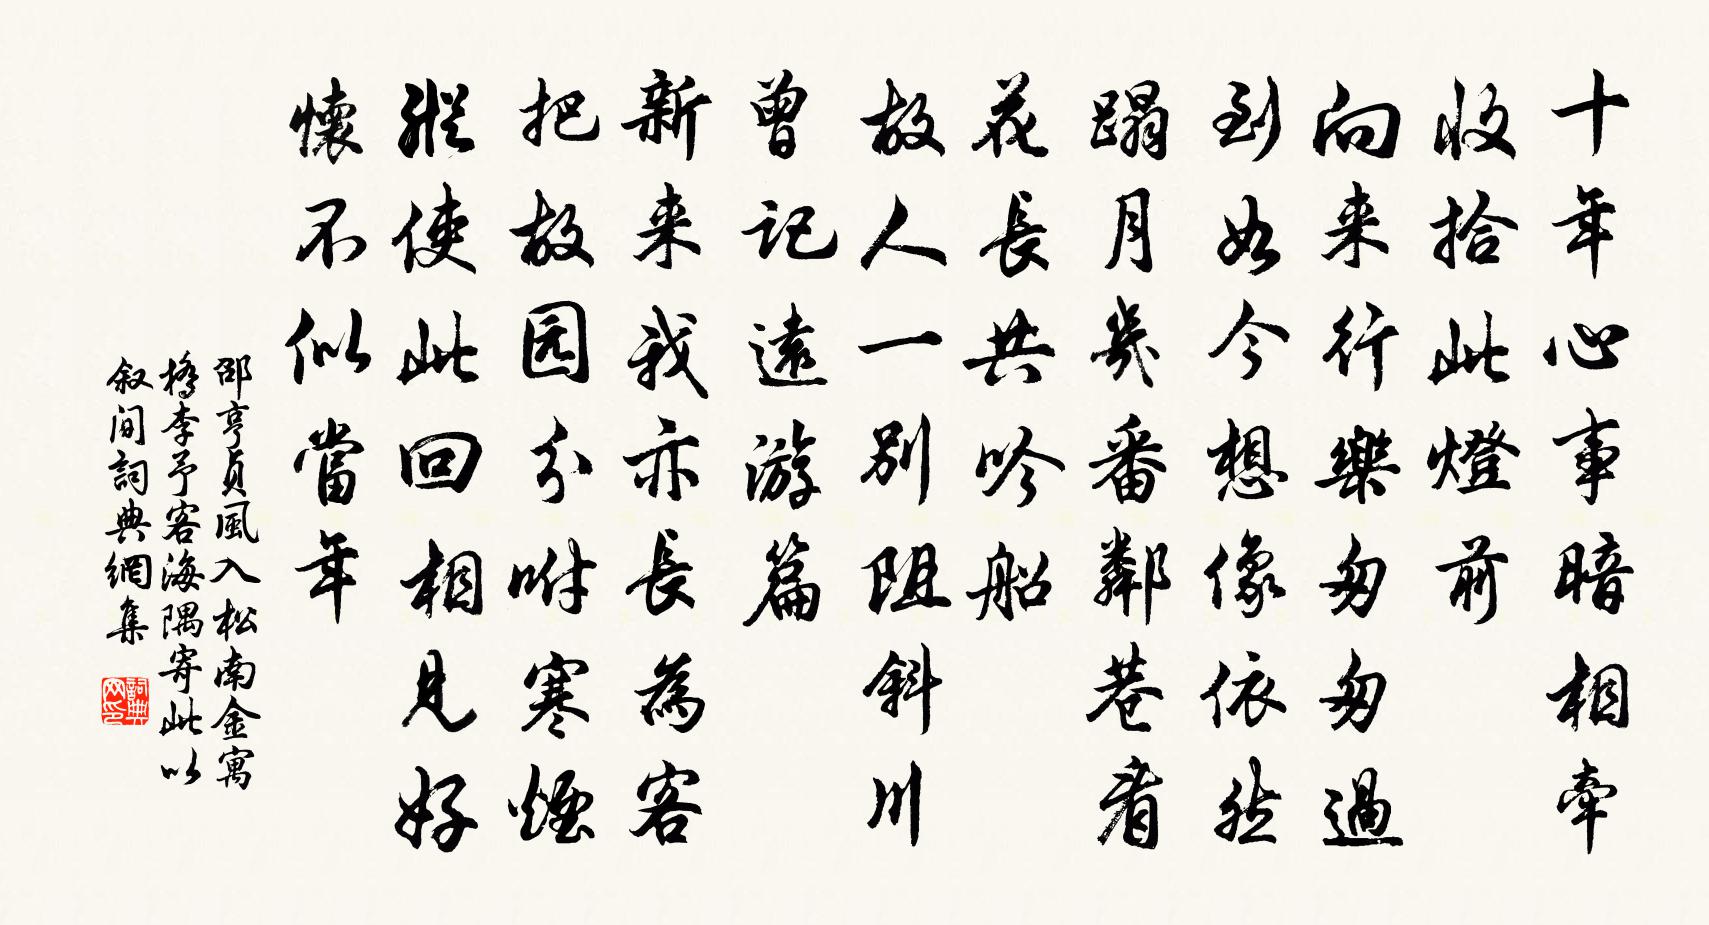 十年心事暗相牽
收拾此燈前
向来行樂匆匆過
到如今想像依然
蹋月幾番鄰巷看
花長共吟船
故人一別阻斜川
曾記遠游篇
新来我亦長為客
把故园分咐寒煙
縱使此回相見好
懷不似當年
邵亨貞風入松南金寓
檇李予客海隅寄此以
叙间詞典網集
詞典网印